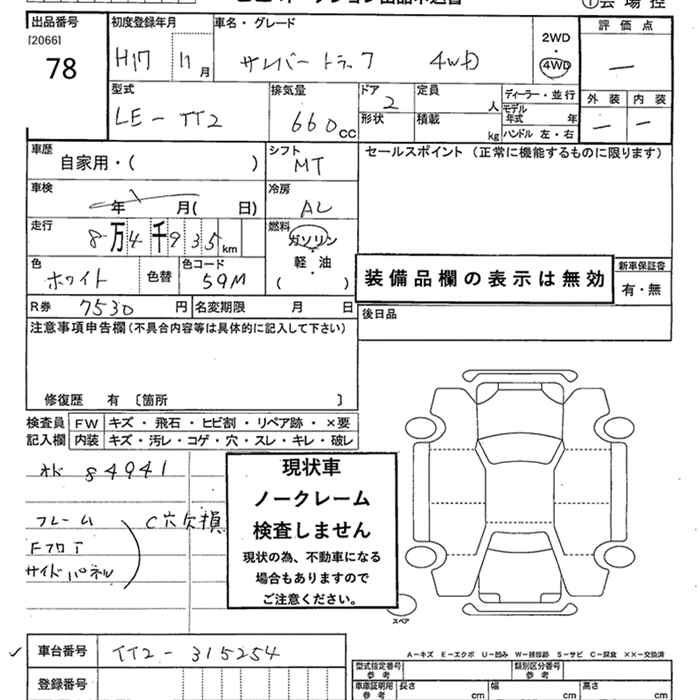 出品番号
[2066]
78
初度登録年月
H17 11月
車名・グレード
サンバートラック 4WD
2WD
4WD
評価点
―
外装 内装
― ―
型式
LE-TT2
排気量
660cc
ドア
2
形状
定員
人
積載
kg
ディーラー・並行
モデル年式 年
ハンドル 左・右
車歴
自家用・( )
シフト
MT
セールスポイント (正常に機能するものに限ります)
車検
年 月( 日)
冷房
AC
走行
8万4千935km
燃料
ガソリン
軽・油
( )
色
ホワイト
色替
色コード
59M
装備品欄の表示は無効
新車保証書
有・無
R券 7530円
名変期限 月 日
後日品
注意事項申告欄(不具合内容等は具体的に記入して下さい)
修復歴 有 〔箇所 〕
検査員記入欄
FW キズ・飛石・ヒビ割・リペア跡・×要
内装 キズ・汚レ・コゲ・穴・スレ・キレ・破レ
84941
フレーム
Fフロア
サイドパネル
C穴欠損
現状車
ノークレーム
検査しません
現状の為、不動車になる
場合もありますので
ご注意ください。
スペア
車台番号 TT2-315254
登録番号
A-キズ E-エクボ U-凹み W-補修跡 S-サビ C-腐食 ××-交換済
型式指定番号 参考
類別区分番号 参考
車庫証明用 参考
長さ cm
幅 cm
高さ cm